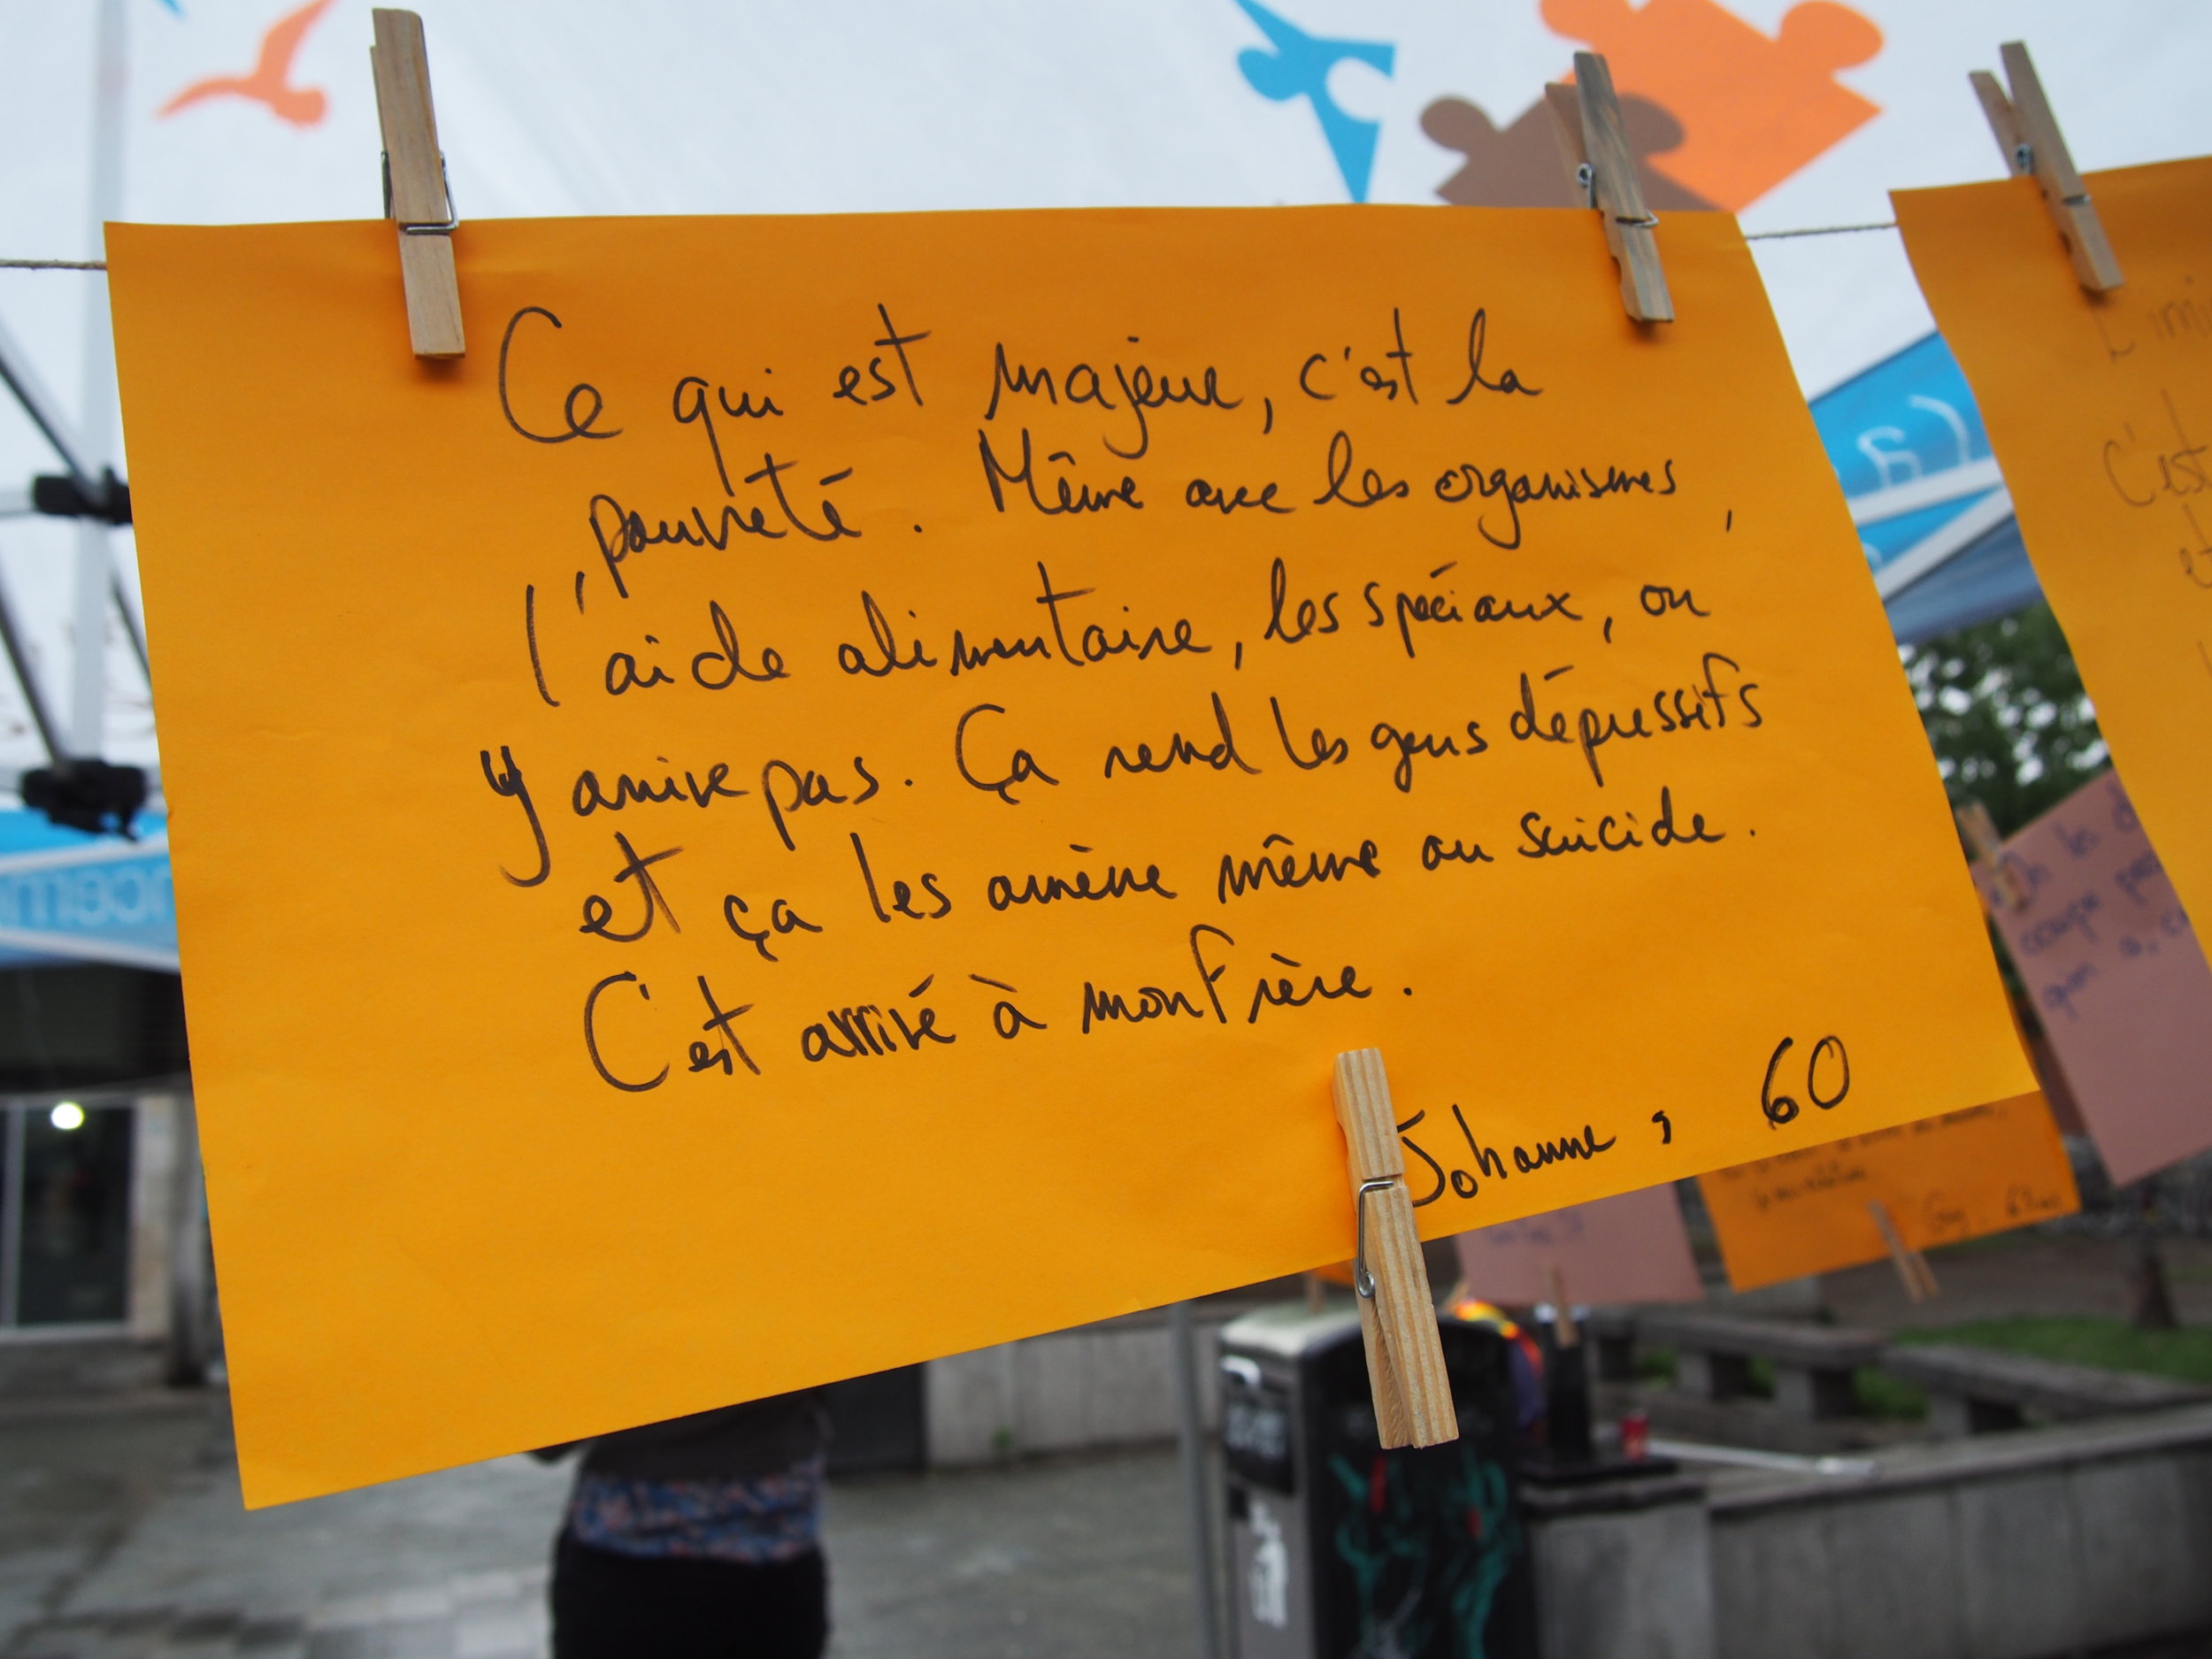 Ce qui est majeur, c'est la
pauvreté. Même avec les organismes,
l'aide alimentaire, les spéciaux, on
y arrive pas. Ça rend les gens dépressifs
et ça les amène même au suicide.
C'est arrivé à mon frère.
Johanne, 60
C'est